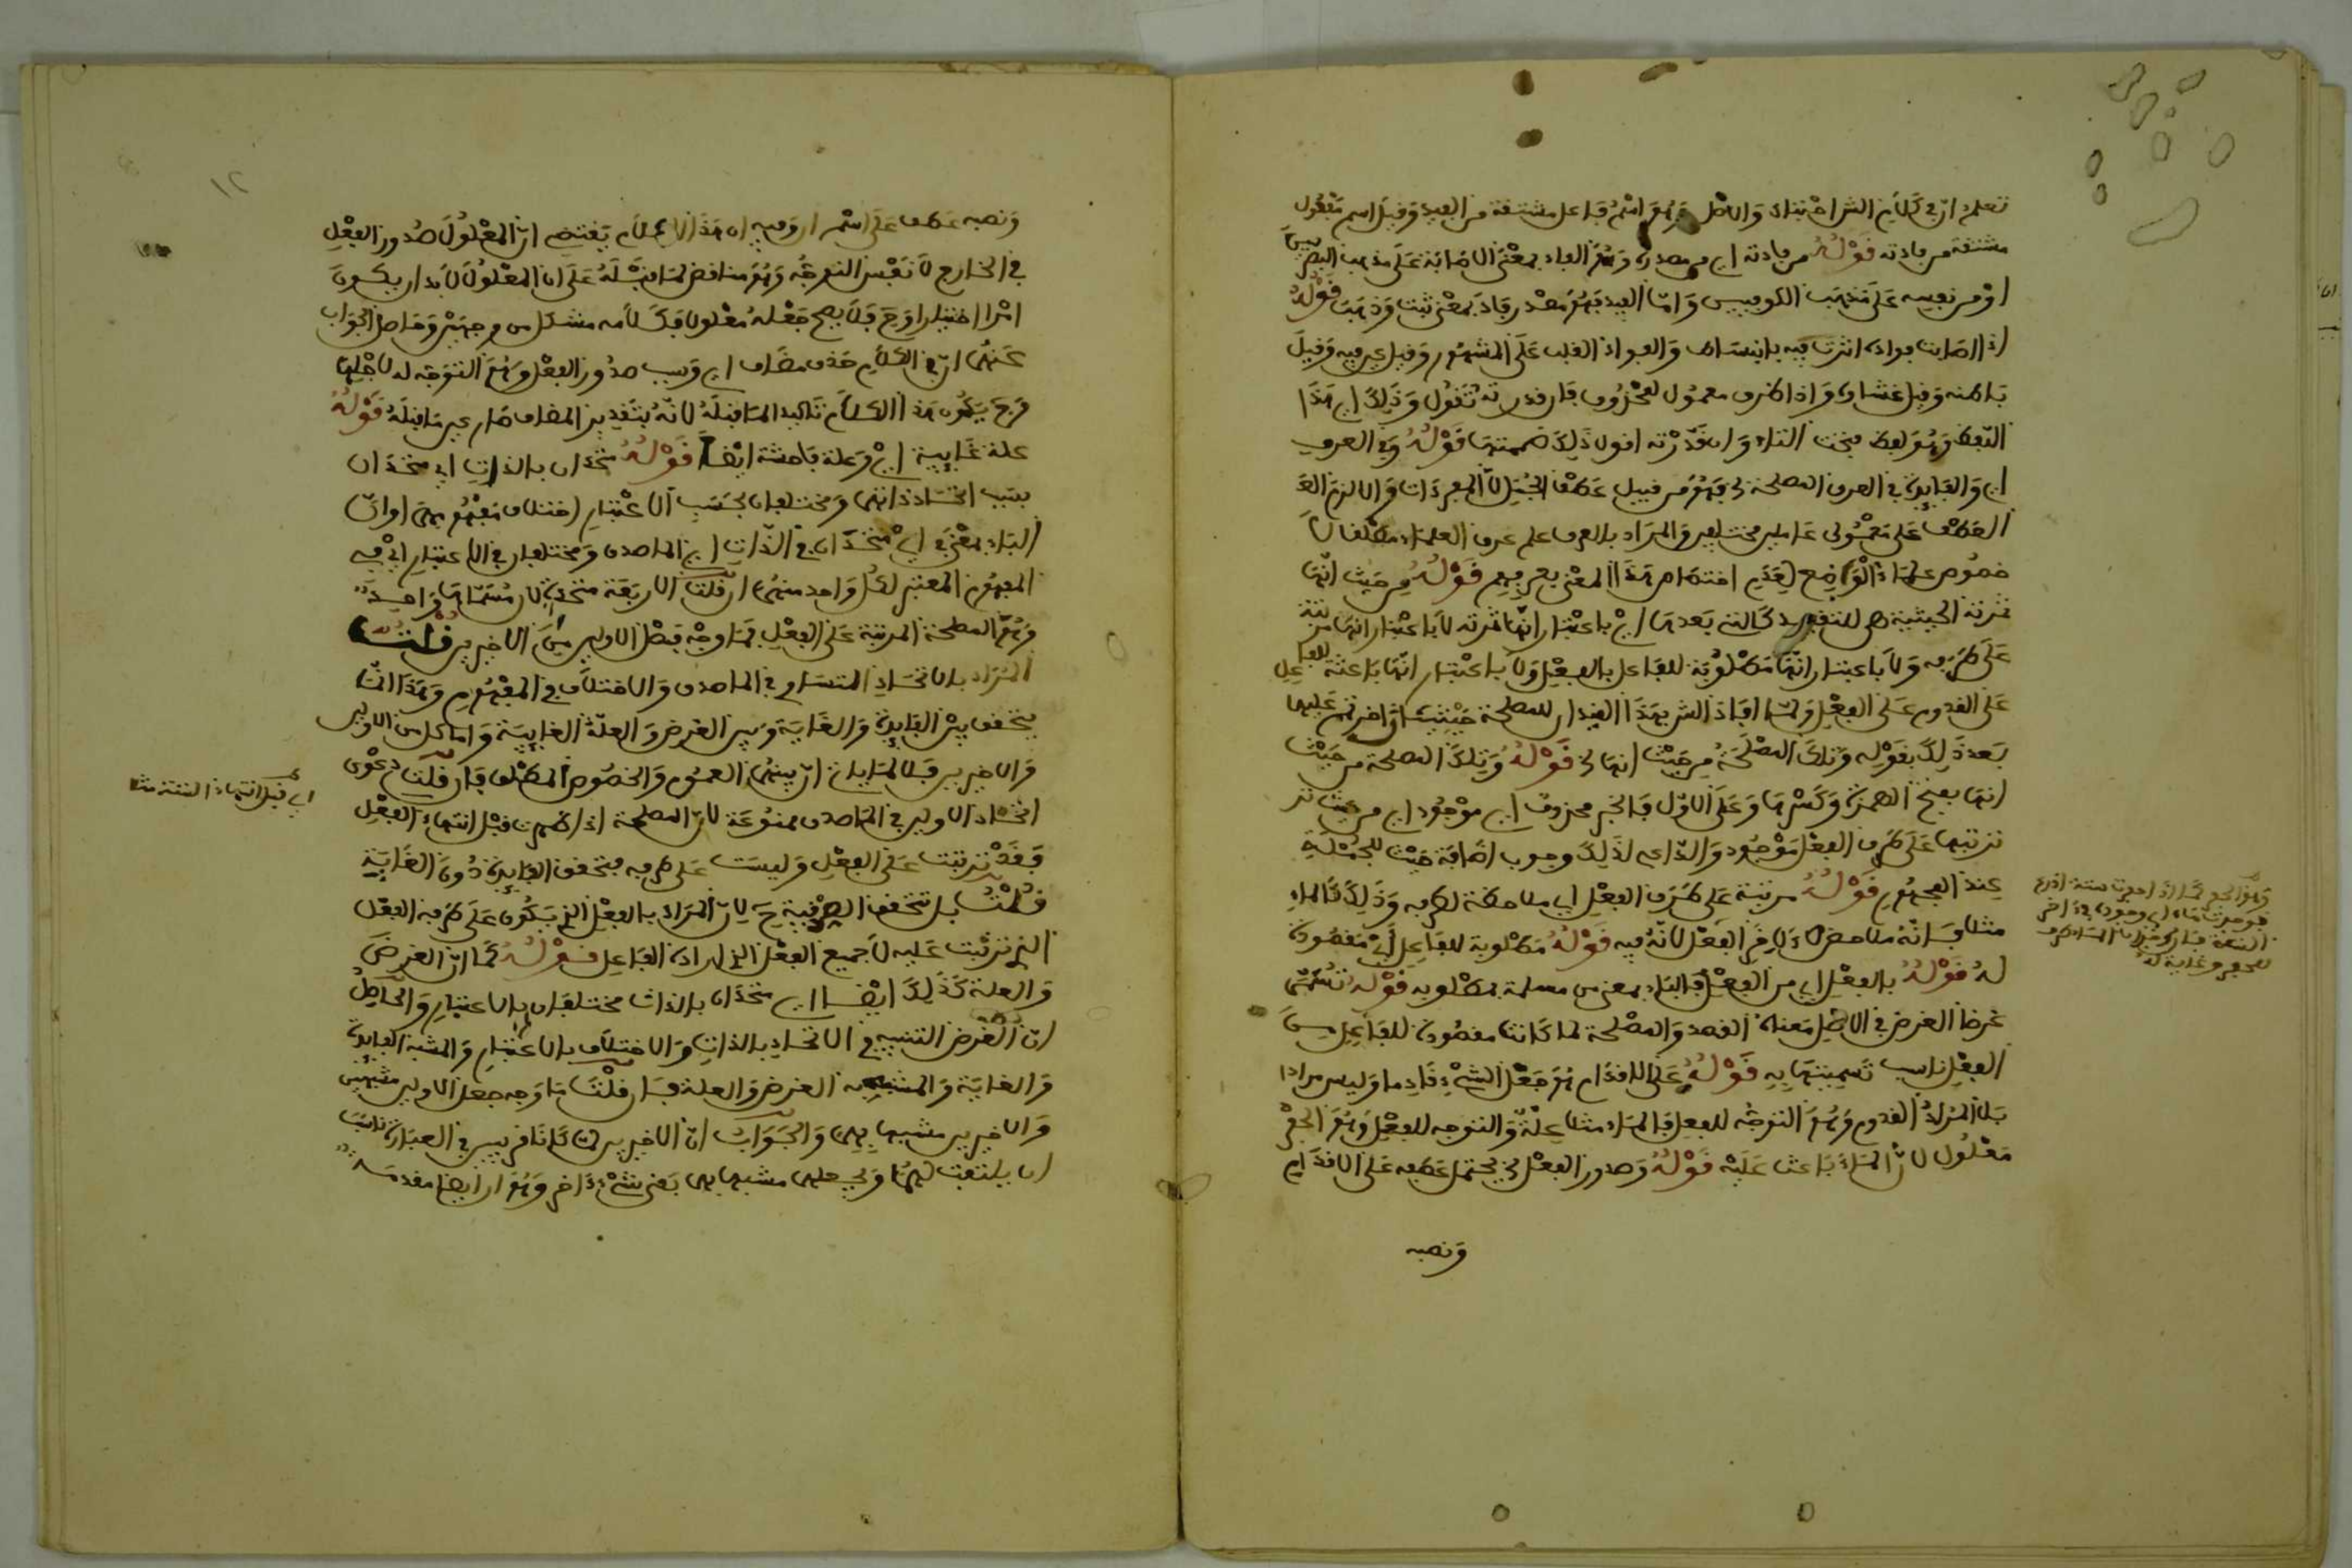 تعلم ان في كلام الش احتباك والاصل وهو اسم فاعل مشتقة من الفيد وقيل اسم مفعول
مشتقة من فادته قوله من فادته اي من مصدره وهو الفاد بمعنى الاصابة على مذهب البصريين
او من نفسه على مذهب الكوفيين واما الفيد فهو مصدر فاد بمعنى ثبت وذهب قوله
اذا اصابت فواده اثرت فيه بانبساط والفواد القلب على المشهور وقيل غير فيه وقيل
باطنه وقيل غشاوه واذا ظرف معمول لمحذوف فان قدرته تقول وذلك اي هذا
اللفظ وهو لفظ فتحت التاء وان قدرته اقول ذلك ضممتها قوله وفي العرف
اي والفايدة في العرف المصلحة الخ فهو من قبيل عطف الجمل لا المفردات والا لزم
العطف على معمولي عاملين مختلفين والمراد بالعرف على عرف العلماء مطلقا لا
خصوص علماء الوضع لعدم اختصاص هذا المعنى بعرفهم قوله من حيث انها
ثمرته الحيثية هي للتقييد كالتي بعدها اي باعتبار انها ثمرته لا باعتبار انها مرتبة
على طرفه ولا باعتبار انها مطلوبة للفاعل بالفعل ولا باعتبار انها باعثة للفاعل
على القدوم على الفعل ولما افاد الش بهذا القيد ان للمصلحة حيثيات اخر نص عليها
بعد ذلك بقوله وتلك المصلحة من حيث انها الخ قوله وتلك المصلحة من حيث
انها بفتح الهمزة وكسرها وعلى الاول فالخبر محذوف اي موجود اي من حيث تر
ترتبها على طرف الفعل موجود والداعي لذلك وجوب اضافة حيث للجملة
عند الجمهور قوله مرتبة على طرف الفعل اي ملاصقة لطرفه وذلك كالماء
مثلا فانه ملاصق لاخر الفعل لانه فيه قوله مطلوبة للفاعل اي مقصودة
له قوله بالفعل اي من الفعل فالباء بمعنى من متعلقة بمطلوبه قوله تسمى
غرضا الغرض في الاصل معناه القصد والمصلحة لما كانت مقصودة للفاعل من
الفعل ناسب تسميتها به قوله على الاقدام هو جعل الشيء قادما وليس مرادا
بل المراد القدوم وهو التوجه للفعل فالماء مثلا علة والتوجه للفعل وهو الحفر
معلول لان الماء باعث عليه قوله وصدور الفعل الخ يحتمل عطفه على الاقدام
ونصبه
ونصبه عطف على اسم ان وفيه ان هذا الكلام يقتضي ان المعلول صدور الفعل
في الخارج لا نفس التوجه وهو مناقض لما قبله على ان المعلول لا بد ان يكون
امرا اختياريا وح فلا يصح جعله معلولا فكلامه مشكل من وجهين وحاصل الجواب
عنهما ان في الكلام حذف مضاف اي وسبب صدور الفعل وهو التوجه له لاجلها
وح يكون هذا الكلام تاكيدا لما قبله لانه بتقدير المضاف صار عين ما قبله قوله
علة غايية اي وعلة باعثة ايضا قوله متحدان بالذات اي متحدان
بسبب اتحاد ذاتهما ومختلفان بحسب الاعتبار اختلاف مفهومهما او ان
الباء بمعنى في اي متحدان في الذات اي الماصدق ومختلفان في الاعتبار اي في
المفهوم المعتبر لكل واحد منهما ان قلت الاربعة متحدة لان مسماها واحد
وهو المصلحة المرتبة على الفعل فما وجه فصل الاولين من الاخيرين قلت
المراد بالاتحاد التساوي في الماصدق والاختلاف في المفهوم وهذا انما
يتحقق بين الفايدة والغاية وبين الغرض والعلة الغايية واما كل من الاولين
والاخيرين فلا لما ياتي ان بينهما العموم والخصوص المطلق فان قلت دعوى
اتحاد الاولين في الماصدق ممنوعة لان المصلحة اذا ظهرت قبل انتهاء الفعل
فقد ترتبت على الفعل وليست على طرفه فتحقق الفايدة دون الغاية
قلت بل تتحقق الطرفية ح لان المراد بالفعل الذي يكون على طرفه الفعل
الذي ترتبت عليه لا جميع الفعل الذي اراده الفاعل قوله كما ان الغرض
والعلة كذلك ايضا اي متحدان بالذات مختلفان بالاعتبار والحاصل
ان الغرض التشبيه في الاتحاد بالذات والاختلاف بالاعتبار والمشبه الفايدة
والغاية والمشبه به الغرض والعلة فان قلت ما وجه جعل الاولين مشبهين
والاخيرين مشبها بهما والجواب ان الاخيرين لما كانا قريبين في العبارة ناسب
ان يلتفت لهما ويجعلهما مشبها بهما بقى شيء اخر وهو ان ايضا مقدمة
اي قبل انتهاء السنة مثلا